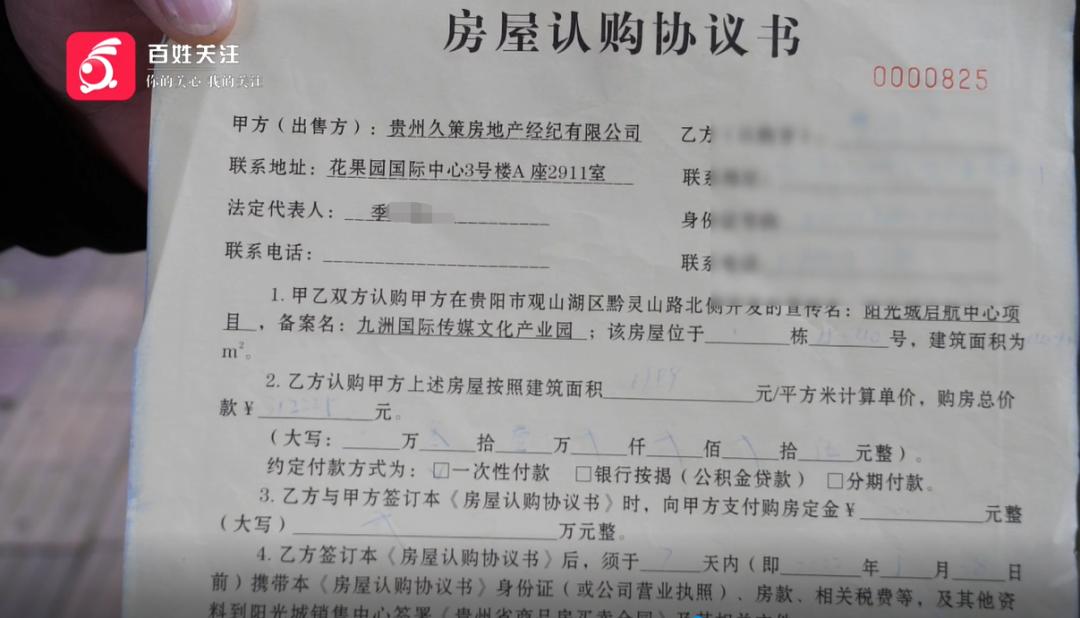 百姓关注
你的关心 我的关注
房屋认购协议书
0000825
甲方（出售方）：贵州久策房地产经纪有限公司 乙方
联系地址：花果园国际中心3号楼A 座2911室 联系
法定代表人：季 身份
联系电话： 联系
1. 甲乙双方认购甲方在贵阳市观山湖区黔灵山路北侧开发的宣传名：阳光城启航中心项
目，备案名：九洲国际传媒文化产业园；该房屋位于 栋 号，建筑面积为
m²。
2. 乙方认购甲方上述房屋按照建筑面积 元/平方米计算单价，购房总价
款¥ 元。
（大写： 万 拾 万 仟 佰 拾 元整）。
约定付款方式为：☑一次性付款 □银行按揭（公积金贷款）□分期付款。
3. 乙方与甲方签订本《房屋认购协议书》时，向甲方支付购房定金¥ 元整
（大写） 万元整。
4. 乙方签订本《房屋认购协议书》后，须于 天内（即 年 月 日
前）携带本《房屋认购协议书》身份证（或公司营业执照）、房款、相关税费等，及其他资
料到阳光城销售中心签署《贵州省商品房买卖合同》及其相关文件